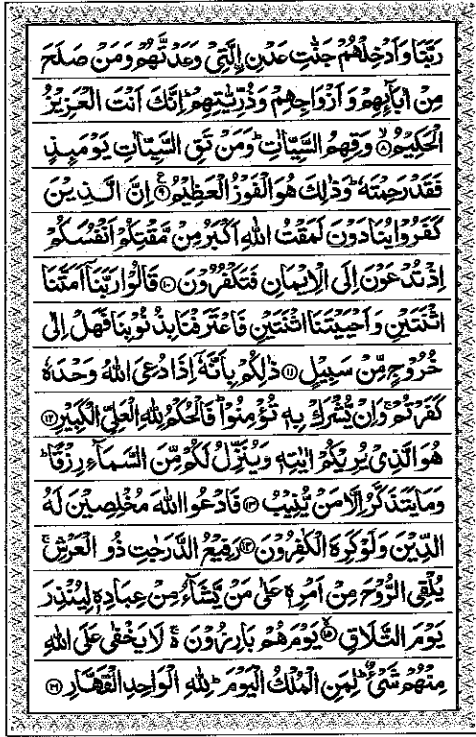 رَبَّنَا وَاَدۡخِلۡهُمۡ جَنّٰتِ عَدۡنِ ۨالَّتِىۡ وَعَدْتَّهُمۡ وَمَنۡ صَلَحَ
مِنۡ اٰبَآٮِٕهِمۡ وَاَزۡوَاجِهِمۡ وَذُرِّيّٰتِهِمۡ ؕ اِنَّكَ اَنۡتَ الۡعَزِيۡزُ
الۡحَكِيۡمُ ۙ‏﴿۸﴾ وَقِهِمُ السَّيِّاٰتِ ؕ وَمَنۡ تَقِ السَّيِّاٰتِ يَوۡمَٮِٕذٍ
فَقَدۡ رَحِمۡتَهٗ ؕ وَذٰلِكَ هُوَ الۡفَوۡزُ الۡعَظِيۡمُ ﴿۹﴾ اِنَّ الَّذِيۡنَ
كَفَرُوۡا يُنَادَوۡنَ لَمَقۡتُ اللّٰهِ اَكۡبَرُ مِنۡ مَّقۡتِكُمۡ اَنۡفُسَكُمۡ
اِذۡ تُدۡعَوۡنَ اِلَى الۡاِيۡمَانِ فَتَكۡفُرُوۡنَ ﴿۱۰﴾ قَالُوۡا رَبَّنَاۤ اَمَتَّنَا
اثۡنَتَيۡنِ وَاَحۡيَيۡتَنَا اثۡنَتَيۡنِ فَاعۡتَرَفۡنَا بِذُنُوۡبِنَا فَهَلۡ اِلٰى
خُرُوۡجٍ مِّنۡ سَبِيۡلٍ ﴿۱۱﴾ ذٰلِكُمۡ بِاَنَّهٗۤ اِذَا دُعِىَ اللّٰهُ وَحۡدَهٗ
كَفَرۡتُمۡ ۚ وَاِنۡ يُّشۡرَكۡ بِهٖ تُؤۡمِنُوۡا ؕ فَالۡحُكۡمُ لِلّٰهِ الۡعَلِىِّ الۡكَبِيۡرِ ﴿۱۲﴾
هُوَ الَّذِىۡ يُرِيۡكُمۡ اٰيٰتِهٖ وَيُنَزِّلُ لَكُمۡ مِّنَ السَّمَآءِ رِزۡقًا ؕ
وَمَا يَتَذَكَّرُ اِلَّا مَنۡ يُّنِيۡبُ ﴿۱۳﴾ فَادۡعُوا اللّٰهَ مُخۡلِصِيۡنَ لَهُ
الدِّيۡنَ وَلَوۡ كَرِهَ الۡكٰفِرُوۡنَ ﴿۱۴﴾ رَفِيۡعُ الدَّرَجٰتِ ذُو الۡعَرۡشِ ۚ
يُلۡقِى الرُّوۡحَ مِنۡ اَمۡرِهٖ عَلٰى مَنۡ يَّشَآءُ مِنۡ عِبَادِهٖ لِيُنۡذِرَ
يَوۡمَ التَّلَاقِ ۙ‏﴿۱۵﴾ يَوۡمَ هُمۡ بَارِزُوۡنَ ۚ لَا يَخۡفٰى عَلَى اللّٰهِ
مِنۡهُمۡ شَىۡءٌ ؕ لِمَنِ الۡمُلۡكُ الۡيَوۡمَ ؕ لِلّٰهِ الۡوَاحِدِ الۡقَهَّارِ ﴿۱۶﴾